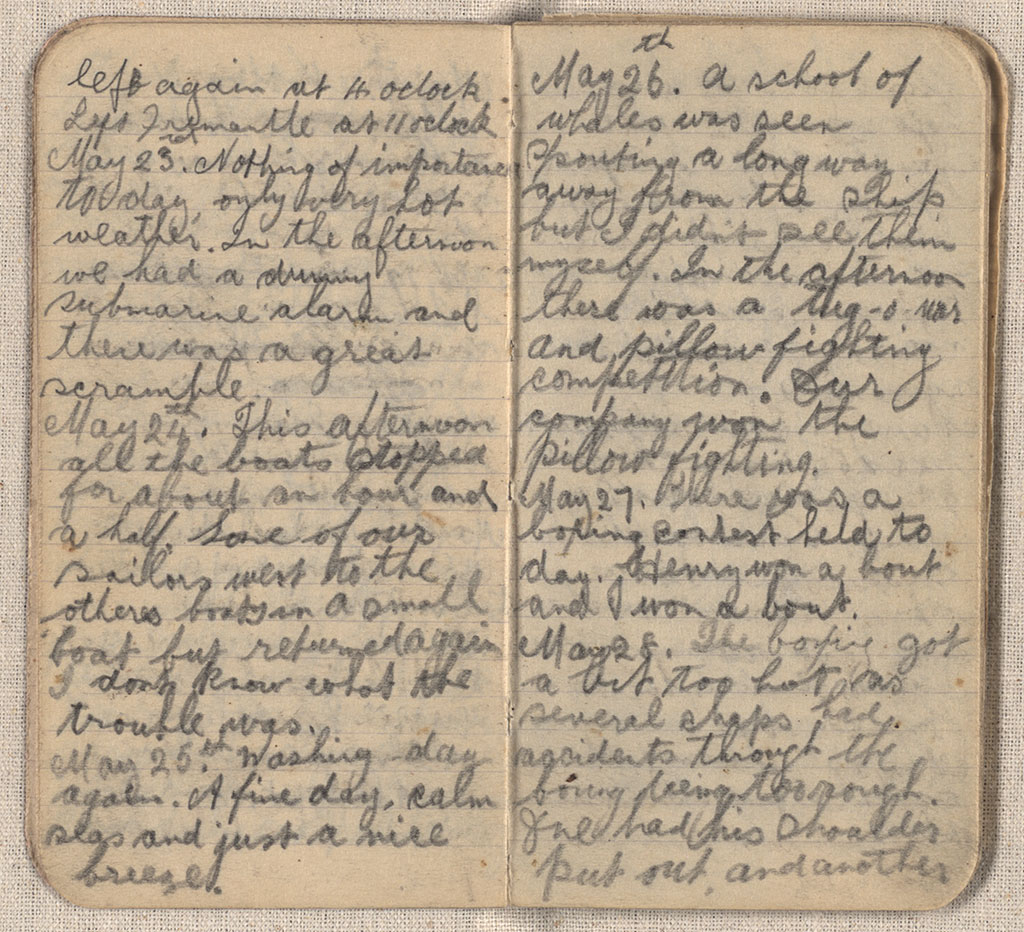 left again at 4 oclock
Left Fremantle at 11 oclock
May 23rd. Nothing of importance
to day, only very hot
weather. In the afternoon
we had a dummy
submarine alarm and
there was a great
scramble.
May 24th. This afternoon
all the boats stopped
for about an hour and
a half. Some of our
sailors went to the
others boats in a small
boat but returned again
I dont know what the
trouble was.
May 25th. Washing day
again. A fine day, calm
seas and just a nice
breeze.
May 26th. A school of
whales was seen
spouting a long way
away from the ship
but I didn't see them
myself. In the afternoon
there was a tug-o-war
and pillow fighting
competition. Our
company won the
pillow fighting.
May 27. There was a
boxing contest held to
day. Henry won a bout
and I won a bout.
May 28. The boxing got
a bit too hot, as
several chaps had
accidents through the
boxing being too rough.
One had his shoulder
put out, and another